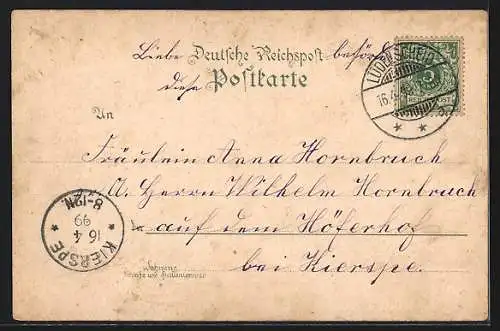 Liebe Deutsche Reichspost behörde
diese Postkarte
LÜDENSCHEID
16.4.
REICHSPOST
An
Fräulein Anna Hornbruch
A. Herrn Wilhelm Hornbruch
auf dem Höferhof
bei Kierspe.
KIERSPE
16 4
99
8-12N.
Wohnung